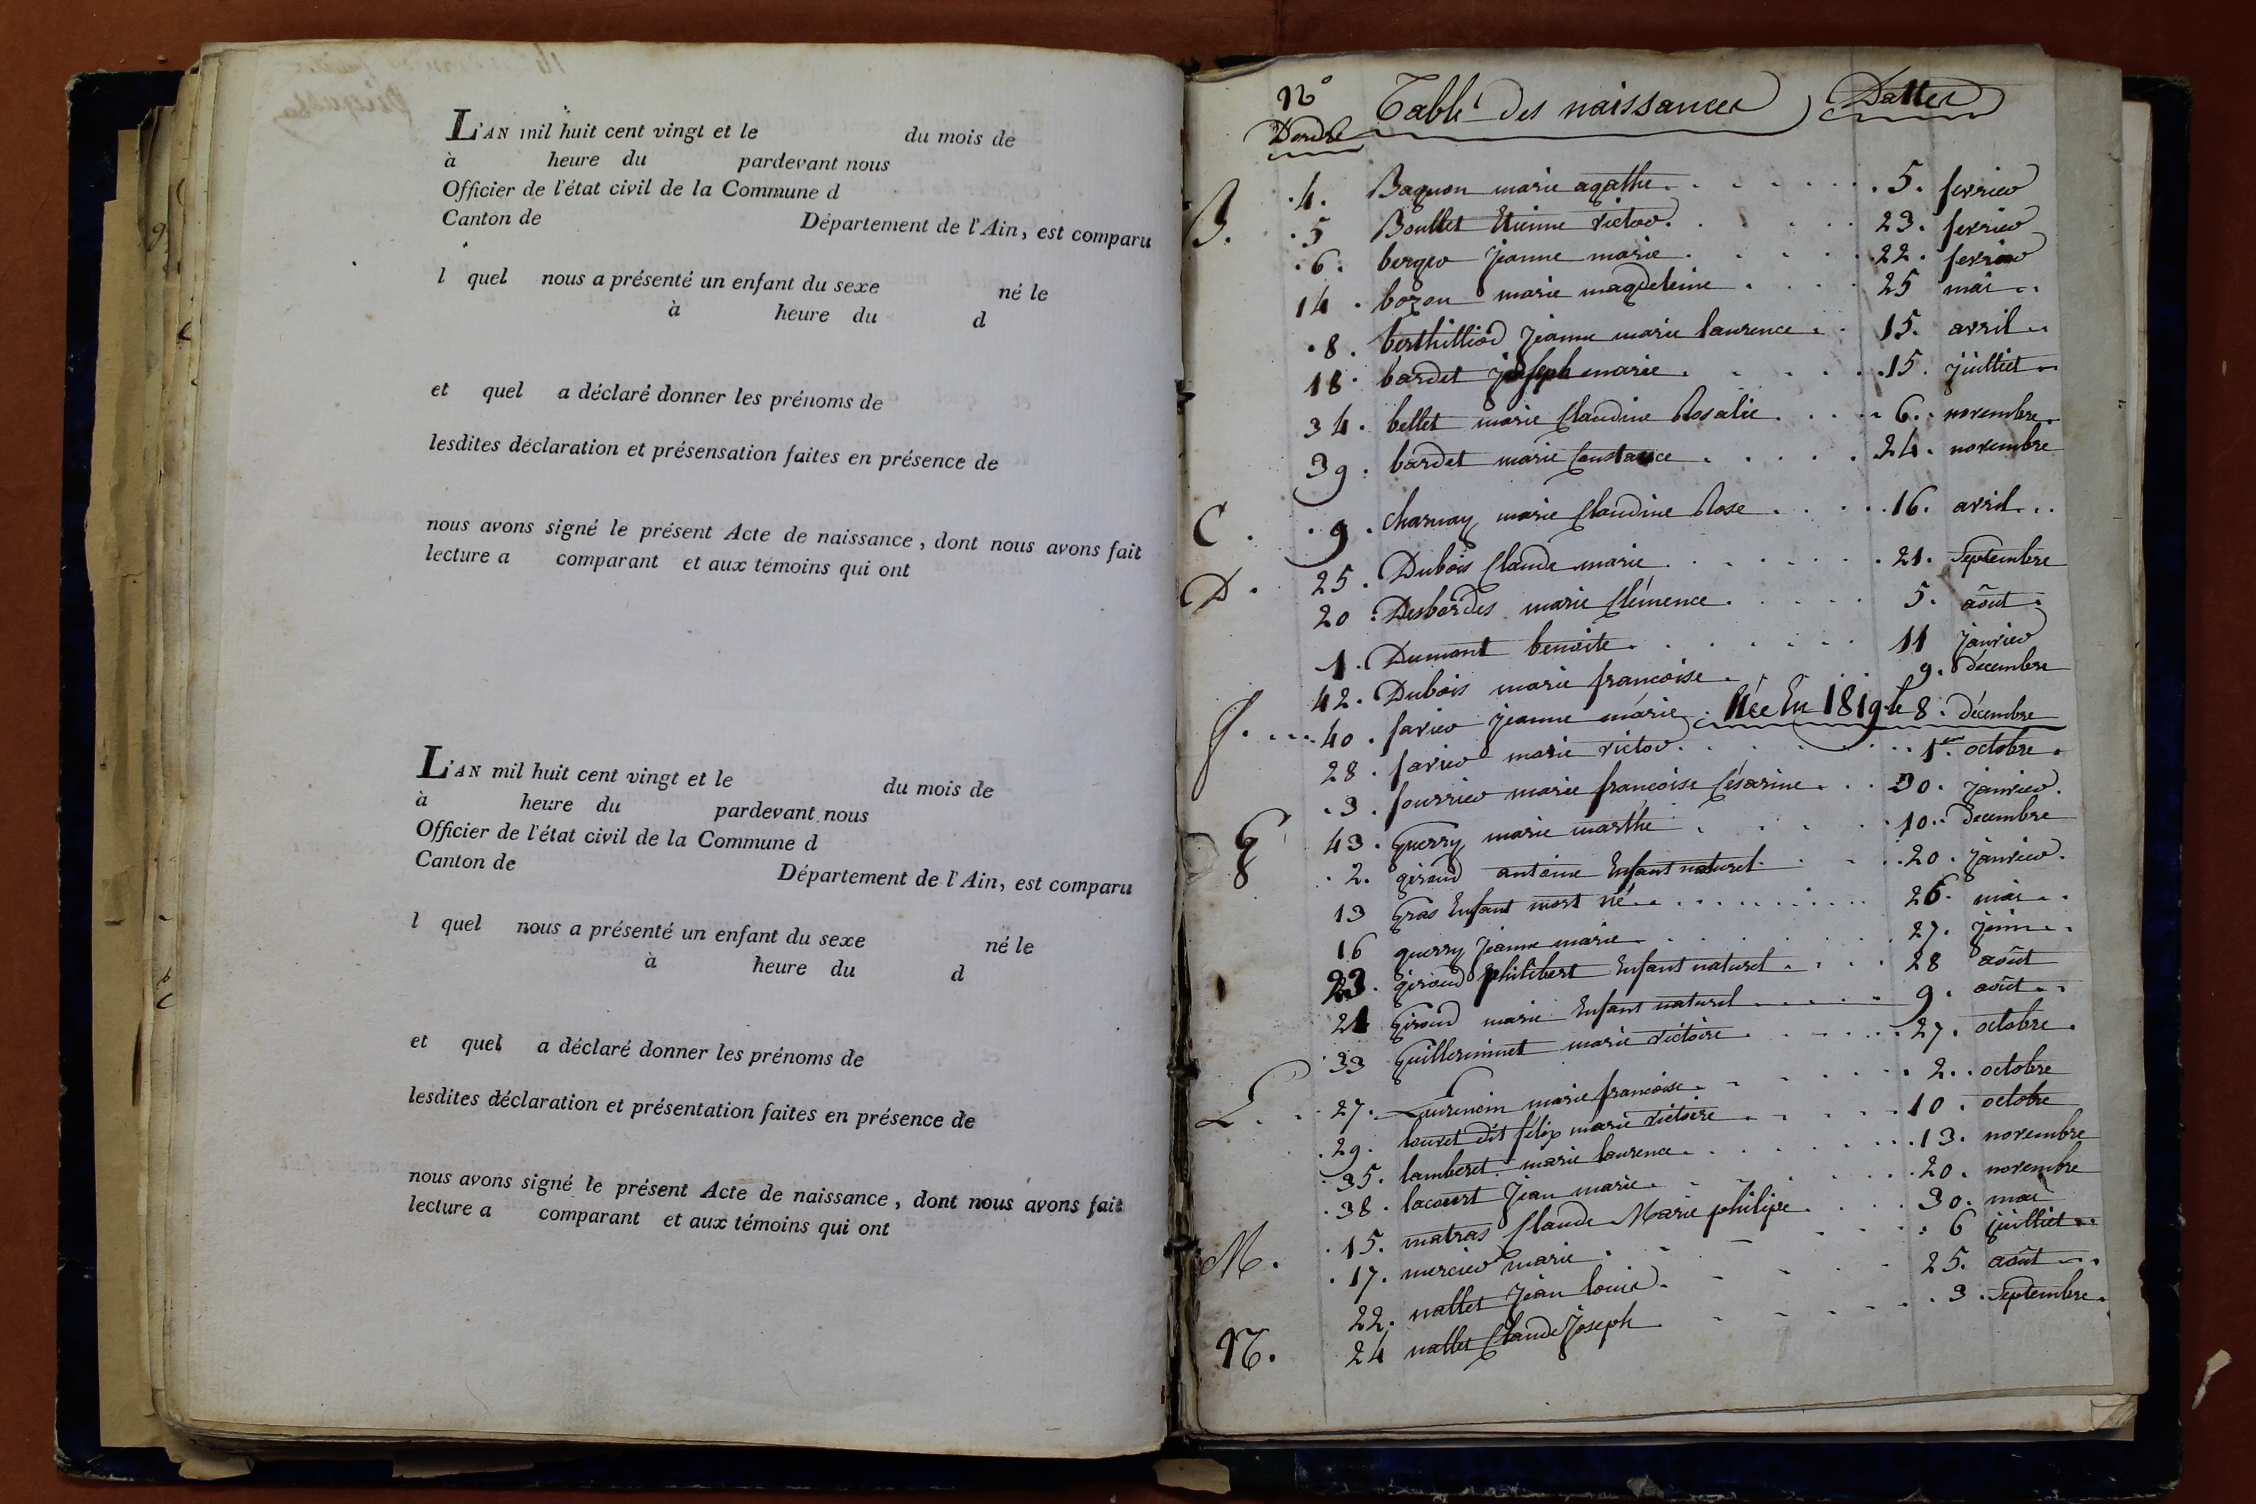 L'AN mil huit cent vingt et le du mois de
à heure du pardevant nous
Officier de l'état civil de la Commune d
Canton de Département de l'Ain, est comparu
l quel nous a présenté un enfant du sexe né le
à heure du d
et quel a déclaré donner les prénoms de
lesdites déclaration et présensation faites en présence de
nous avons signé le présent Acte de naissance, dont nous avons fait
lecture a comparant et aux témoins qui ont
L'AN mil huit cent vingt et le du mois de
à heure du pardevant nous
Officier de l'état civil de la Commune d
Canton de Département de l'Ain, est comparu
l quel nous a présenté un enfant du sexe né le
à heure du d
et quel a déclaré donner les prénoms de
lesdites déclaration et présentation faites en présence de
nous avons signé le présent Acte de naissance, dont nous avons fait
lecture a comparant et aux témoins qui ont
No Dordre Table des naissances Dattes
B. 4. Baguon marie agathe 5. fevrier
5 Boullet Etienne victor 23. fevrier
6. berger jeanne marie 22. fevrier
14. bozon marie magdeleine 25 mai
8. berthilliod jeanne marie laurence 15. avril
18. bardet joseph marie 15. juilliet
34. bellet marie Claudine Rosalie 6. novembre
39. bardet marie Constance 24. novembre
C. 9. Charnay marie Claudine Rose 16. avril
D. 25. Dubois Claude marie 21. Septembre
20. Desbordes marie Clémence 5. août
1. Dumont benoite 11 janvier
42. Dubois marie francoise 9. décembre
f. 40. favier jeanne marie Née En 1819 le 8. décembre
28. favier marie victor 1er octobre
3. fourrier marie francoise Césarine 30. janvier
G 43. Guerry marie marthe 10. decembre
2. giroud antoine Enfant naturel 20. janvier
13 Gras Enfant mort né 26. mai
16 guerry jeanne marie 27. juin
23. giroud philibert Enfant naturel 28 août
21 Giroud marie Enfant naturel 9. août
33 Guillerminet marie victoire 27. octobre
L. 27. marie francoise 2. octobre
29. louvet dit félix marie victoire 10. octobre
35. lamberet marie laurence 13. novembre
38. lacourt jean marie 20. novembre
M. 15. matras Claude Marie philipe 30. mai
17. mercier marie 6 juilliet
22. nallet jean louis 25. août
N. 24 nallet Claude joseph 3. Septembre